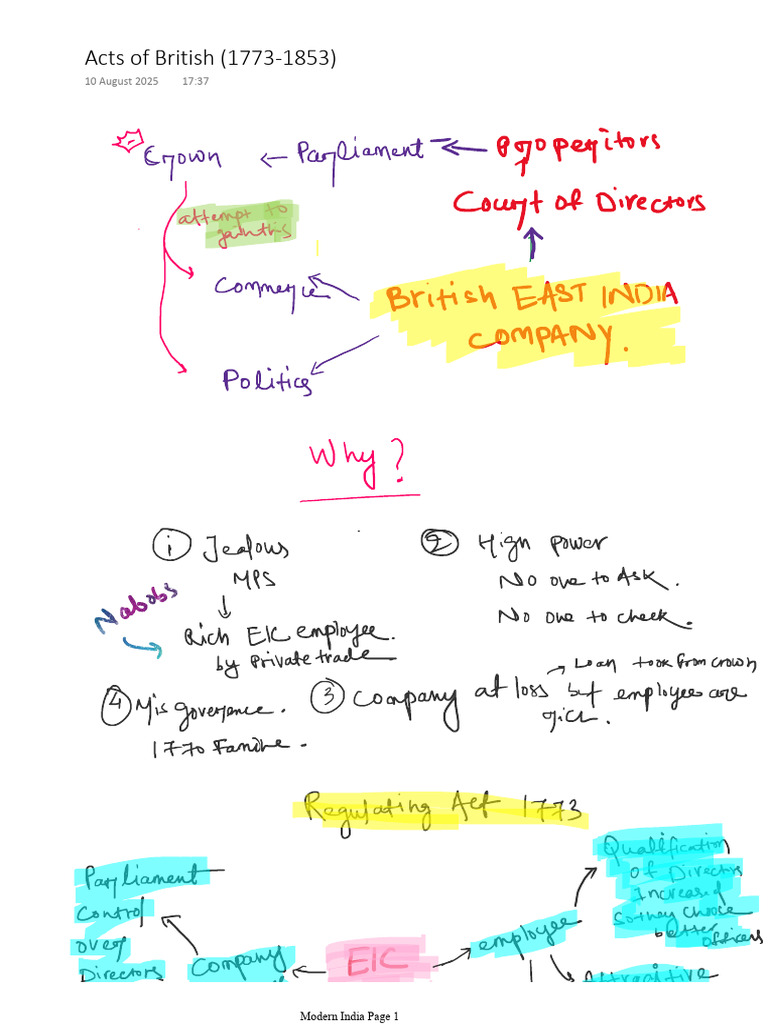 Acts of British (1773-1853)
10 August 2025 17:37
Crown ← Parliament ← Properitors
Court of Directors
attempt to
gain this
Commerce
British EAST INDIA
COMPANY.
Politics
Why?
① Jealous
MPS
↓
Nabobs
Rich EIC employee.
by Private trade
② High power
No one to Ask.
No one to check.
→ Loan took from crown
③ Company at loss but employee are
rich.
④ Mis governence.
1770 Famine.
Regulating Act 1773
Parliament
Control
over
Directors
Company
EIC
employee
Qualification
of Directors
Increased
So they choose
better
officers
Attractive
Modern India Page 1